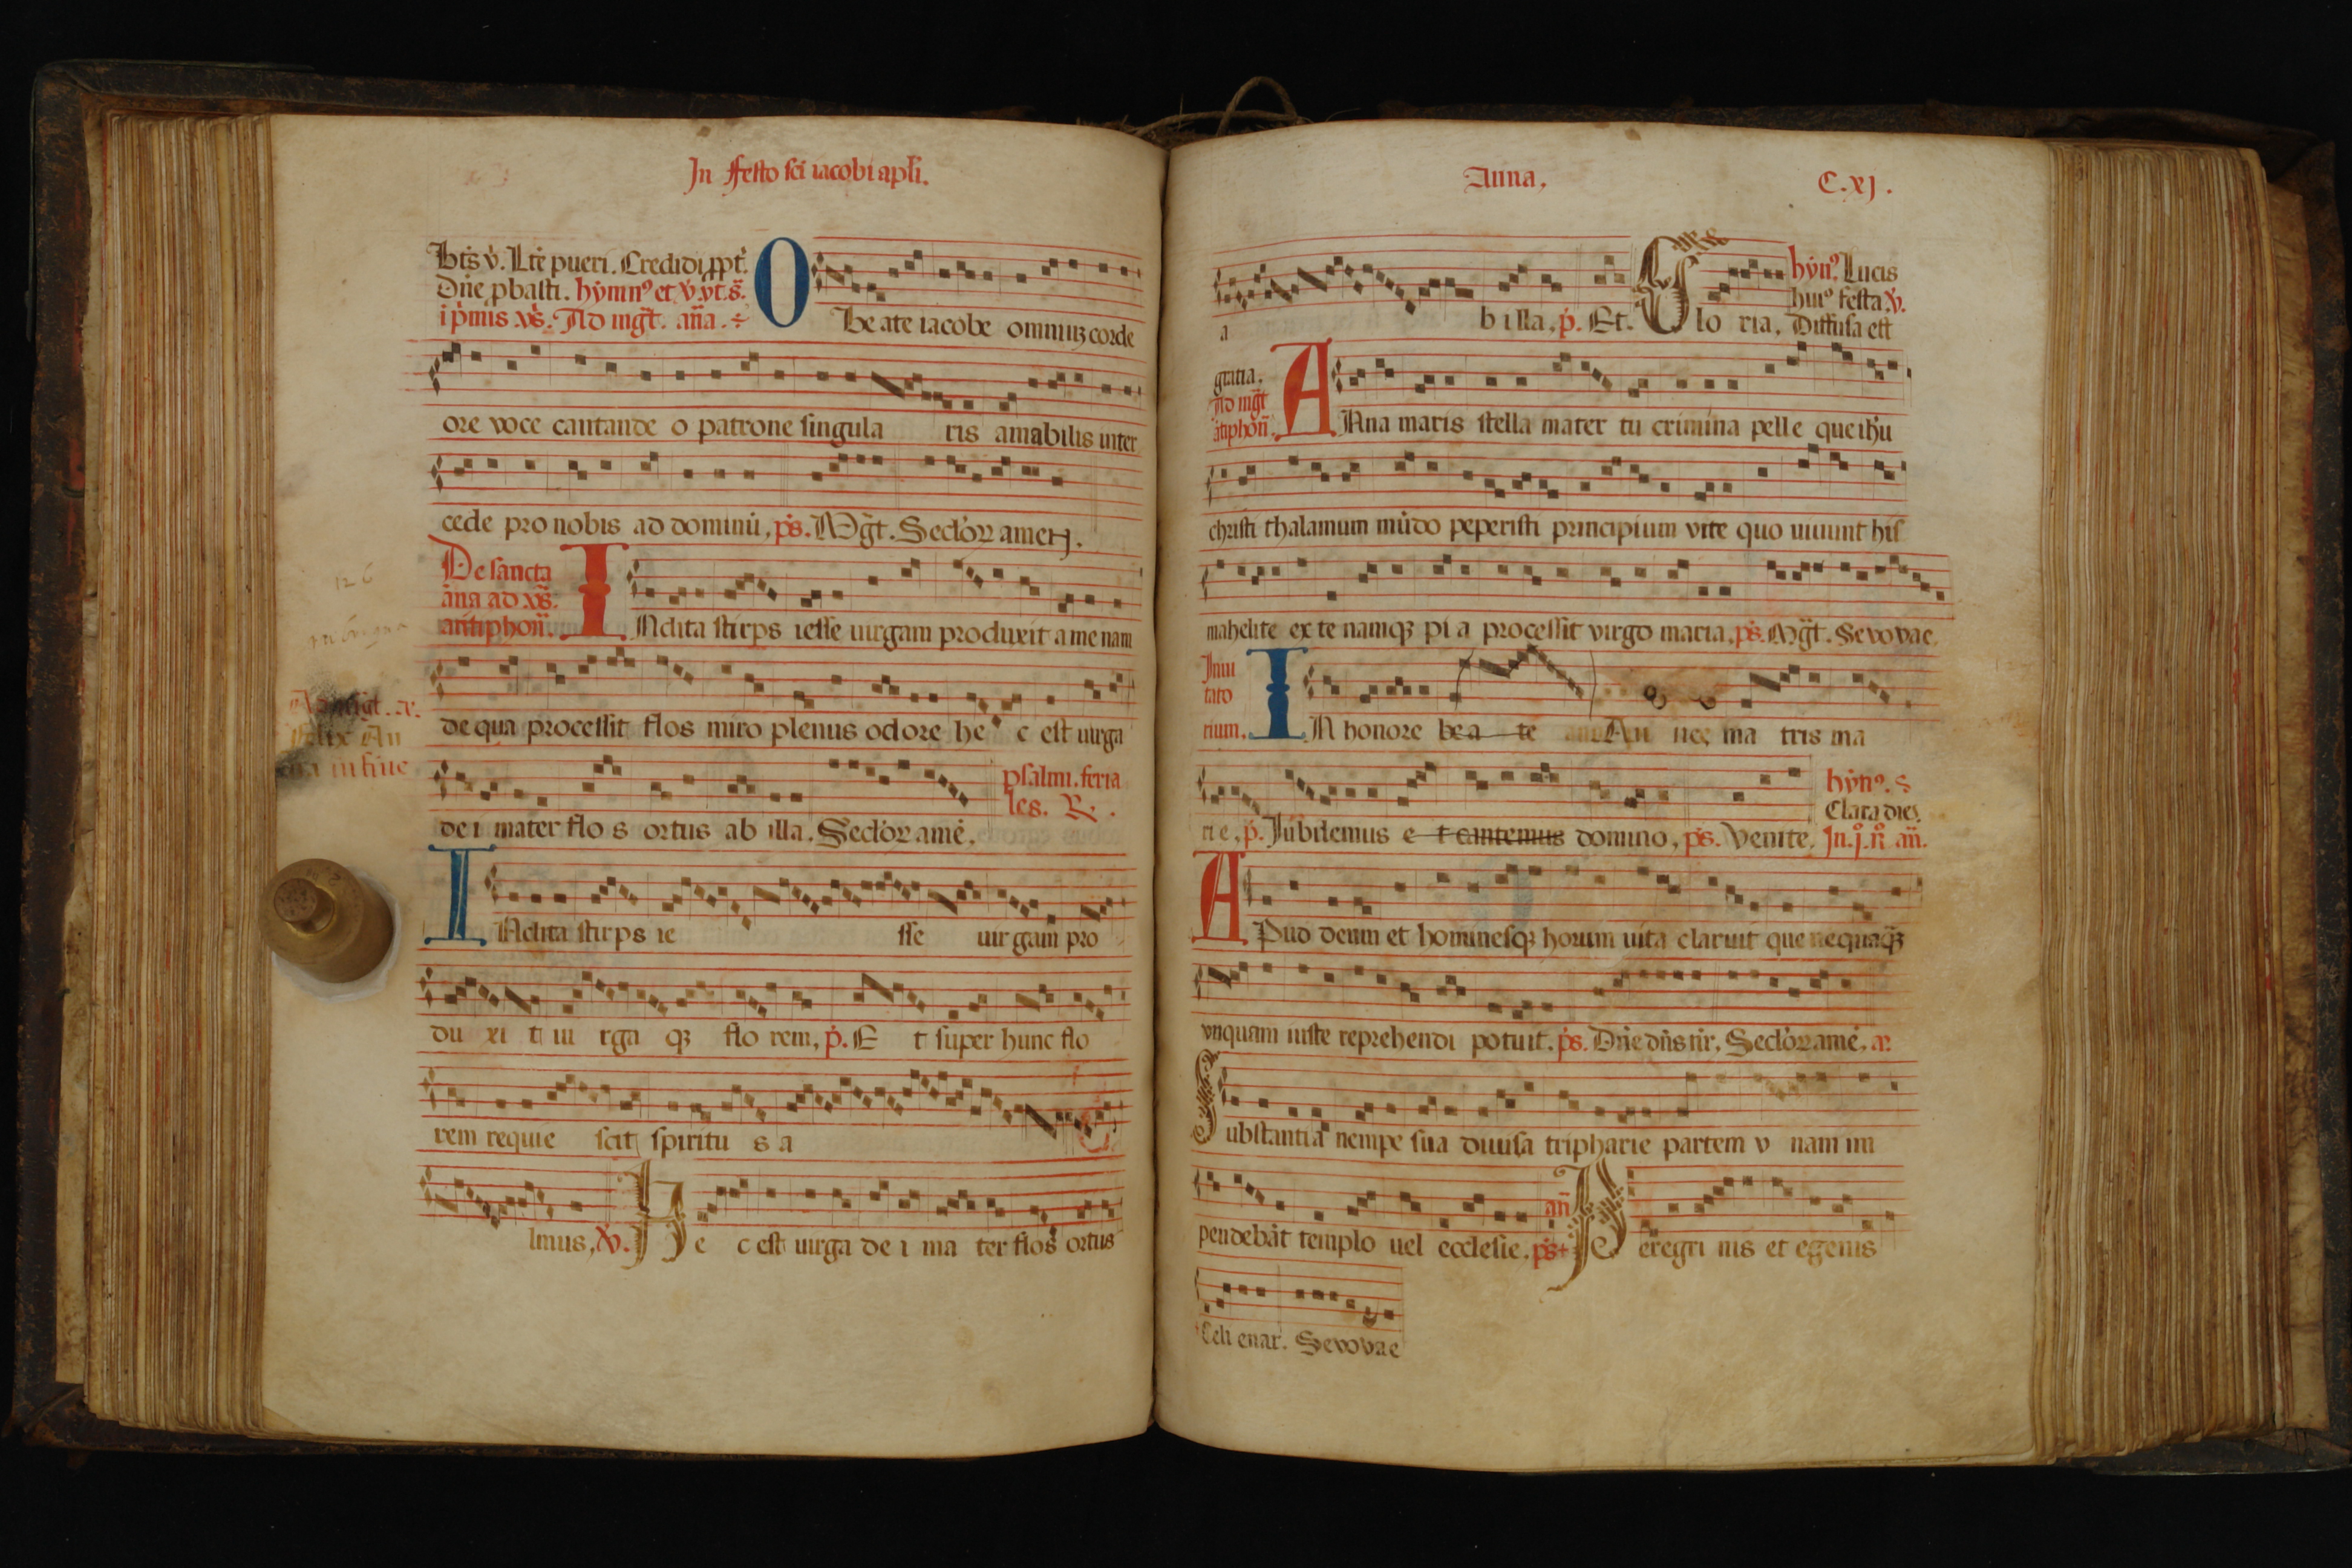 In festo sci iacobi apli.
Bts v̇. Ltė pueri. Credidi, ppt̉.
Dn̄e ꝓbasti. hymnꝰ et v̇. vt. s̄.
i pͥmis vṡ. Ad mg̃t. an̄a. ÷
O Beate iacobe omniuꝫ corde
ore voce cantande o patrone singula ris amabilis inter
cede pro nobis ad dominū, pṡ. Mg̃t. Seclo̓ꝝ amen.
De sancta
ān̄a ad vṡ.
antiphon̄.
INclita stirps iesse uirgam produxit amenam
126
de qua processit flos miro plenus odore he c est uirga
de i mater flo s ortus ab illa. Seclo̓ꝝ amē.
psalmi. feria
les. ℞.
na in fine
INclita stirps ie sse uir gam pro
du xi t ui rga qꝫ flo rem, ṗ. E t super hunc flo
rem requie scit spiritu s a
lmus, v̇. He c est uirga de i ma ter flos ortus
Anna, C. xj.
a b illa, ṗ. Et. Glo ria.
hẏnꝰ. Lucis
huiꝰ festa v̇.
Diffusa est
gratia.
Ad mg̃t
ātiphon̄.
ANna maris stella mater tu crimina pelle que ih̄u
christi thalamum mūdo peperisti principium vite quo uiuunt his
mahelite ex te namqꝫ pi a processit virgo maria. pṡ. Mg̃t. Sevovae.
Inui
tato
rium.
IN honore bea te An neę ma tris ma
rie, ṗ. Iubilemus e t cantemus domino, pṡ. Venite.
hẏnꝰ. s̄
Clara diei.
In. j̊. n̊. an̄.
APud deum et hominesqꝫ horum uita claruit que nequaqꝫ
vnquam iuste reprehendi potuit. pṡ. Dn̄e dn̄s nr̄. Seclo̓ꝝ amē. a᷑.
Substantia nempe sua diuisa tripharie partem v nam im
pendebāt templo uel ecclesie. pṡ+ an̄ Peregri nis et egenis
Celi enar. Sevovae